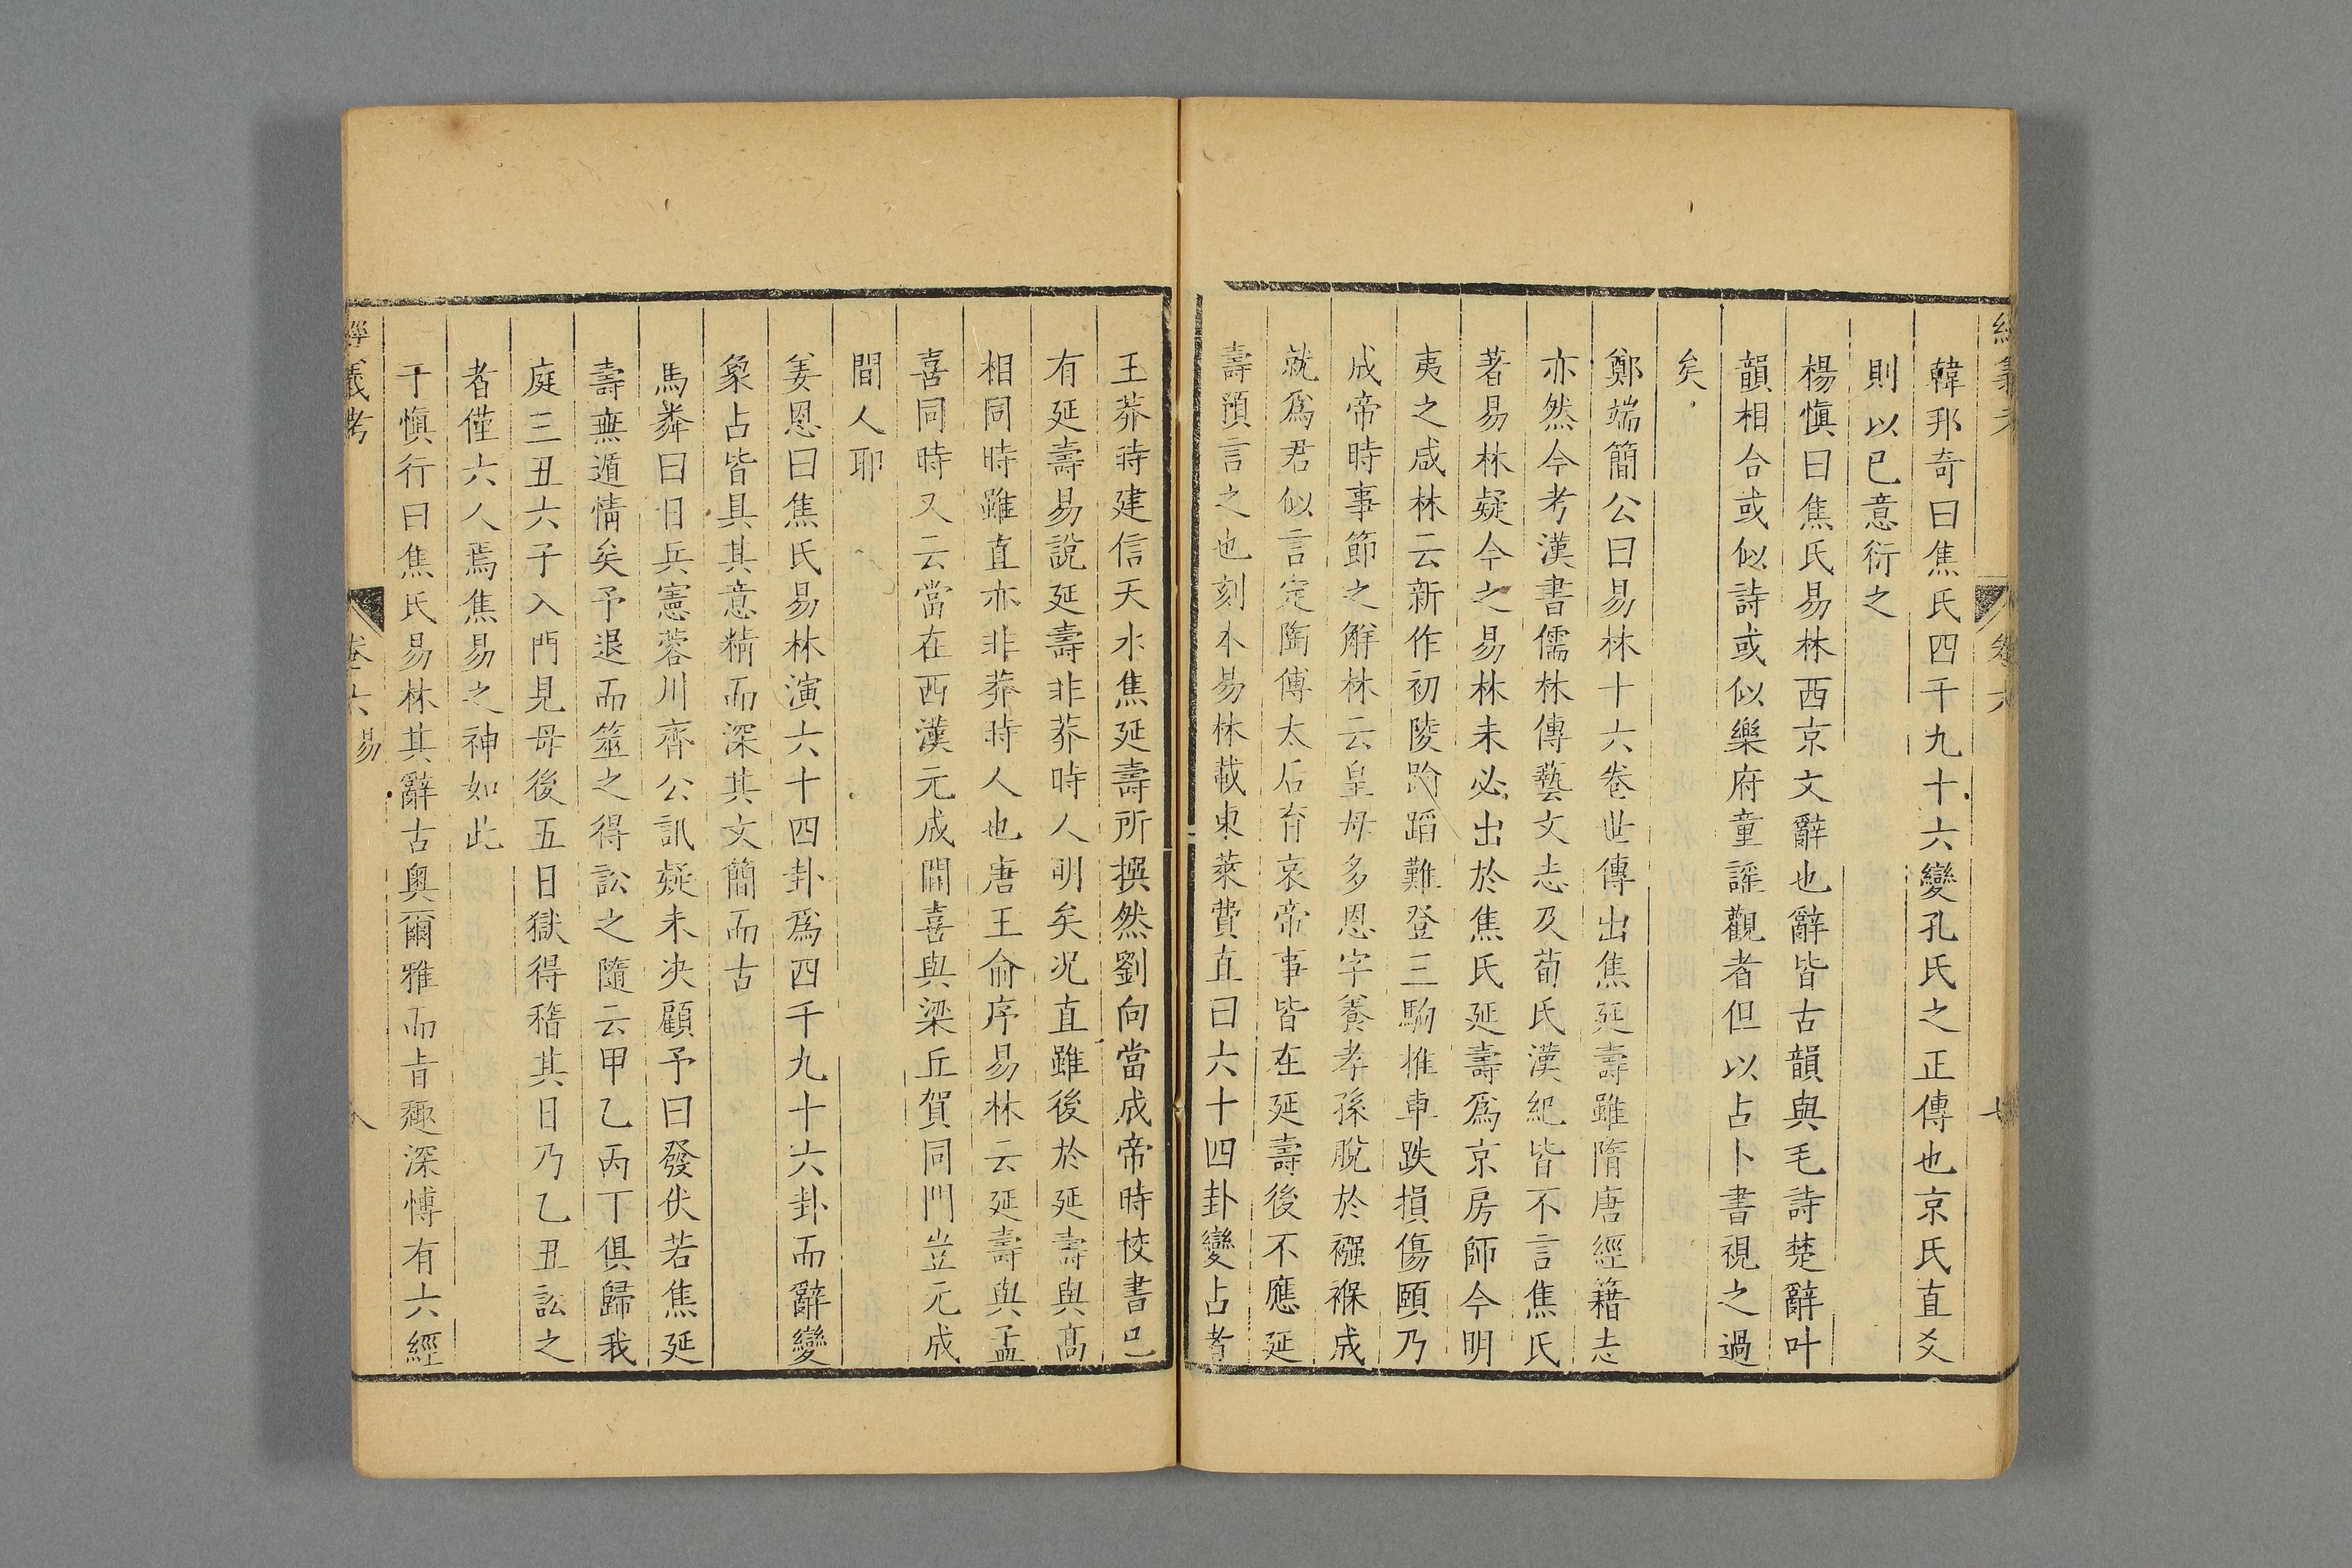 經義考 卷六 七
韓邦奇曰焦氏四千九十六變孔氏之正傳也京氏直爻
則以已意衍之
楊愼曰焦氏易林西京文辭也辭皆古韻與毛詩楚辭叶
韻相合或似詩或似樂府童謡觀者但以占卜書視之過
矣
鄭端簡公曰易林十六卷世傳出焦延壽雖隋唐經籍志
亦然今考漢書儒林傳藝文志及荀氏漢紀皆不言焦氏
著易林疑今之易林未必出於焦氏延壽爲京房師今明
夷之咸林云新作初陵踰蹈難登三駒推車跌損傷頤乃
成帝時事節之解林云皇母多恩字養孝孫脫於襁褓成
就爲君似言定陶傅太后育哀帝事皆在延壽後不應延
壽預言之也刻本易林載東萊費直曰六十四卦變占者
王莽時建信天水焦延壽所撰然劉向當成帝時校書已
有延壽易說延壽非莽時人明矣况直雖後於延壽與高
相同時雖直亦非莽時人也唐王俞序易林云延壽與孟
喜同時又云當在西漢元成間喜與梁丘賀同門豈元成
間人耶
姜恩曰焦氏易林演六十四卦爲四千九十六卦而辭變
象占皆具其意精而深其文簡而古
馬粦曰日兵憲蓉川齊公訊疑未决顧予曰發伏若焦延
壽無遁情矣予退而筮之得訟之隨云甲乙丙丁俱歸我
庭三丑六子入門見母後五日獄得稽其日乃乙丑訟之
者僅六人焉焦易之神如此
于愼行曰焦氏易林其辭古奥爾雅而旨趣深愽有六經
經義考 卷六 易 八